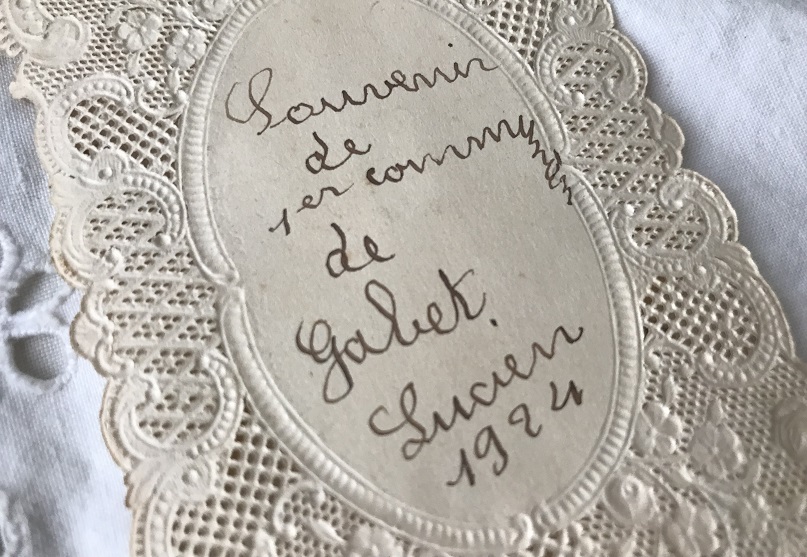 Souvenir
de
1er communion
de
Gabet.
Lucien
1924